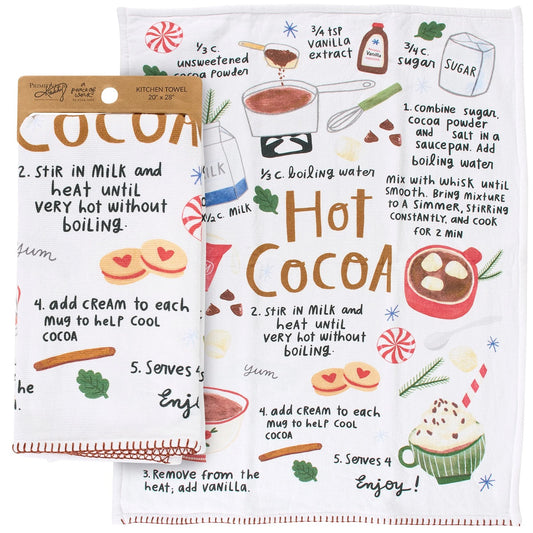 PRIMITIVES by Kathy
a peace of werk
KITCHEN TOWEL
20" x 28"
COCOA
2. Stir in milk and
heat until
very hot without
boiling.
yum
4. add cream to each
mug to help cool
cocoa
5. Serves
Enj
⅓ c.
unsweetened
cocoa powder
¾ tsp
vanilla
extract
¾ c.
sugar
SUGAR
1. combine sugar,
cocoa powder
and salt in a
saucepan. Add
boiling water
⅓ c. boiling water
mix with whisk until
smooth. Bring mixture
to a simmer, stirring
constantly, and cook
for 2 min
milk
½ c. milk
Hot
COCOA
2. Stir in milk and
heat until
very hot without
boiling.
yum
4. add cream to each
mug to help cool
cocoa
3. Remove from the
heat; add vanilla.
5. Serves 4
Enjoy!